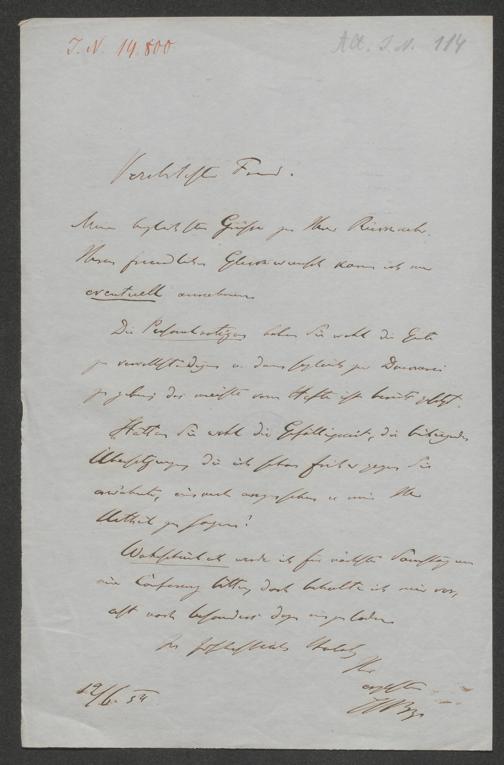 I. N. 19.800
Ad. I. N. 114
Verehrtester Freund.
Meine herzlichsten Grüße zu Ihrer Rückkehr.
Ihren freundlichen Glückwunsch kann ich nur
eventuell annehmen
Die Personalnotizen haben Sie wohl die Güte
zu vervollständigen u. dann sogleich zur Druckerei
zu geben der meiste vom Hefte ist bereits
Hätten Sie wohl die Gefälligkeit, die beiliegenden
Übersetzungen die ich schon früher gegen Sie
erwähnte, einmal anzusehen u. mir Ihr
Urtheil zu sagen!
Wahrscheinlich werde ich für nächsten Samstag um
eine Conferenz bitten, doch behalte ich mir vor,
erst noch besonders dazu einzuladen
Ihr
12/6. 54